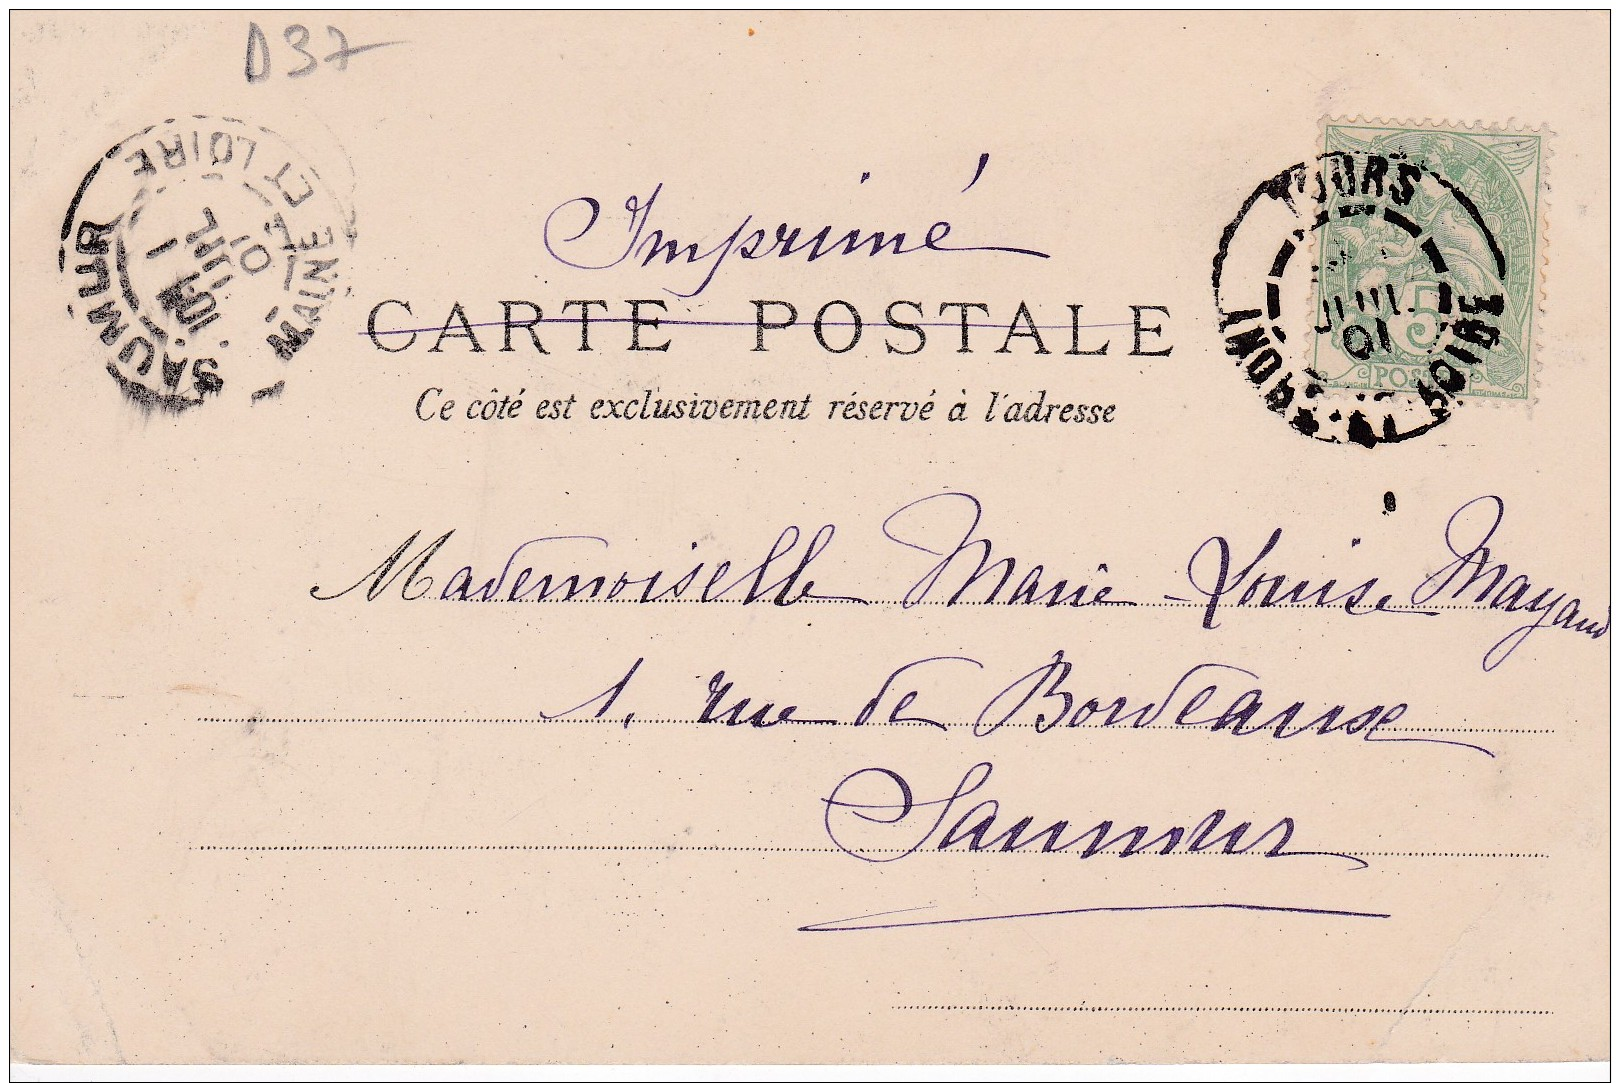 D37
SAUMUR
MAINE ET LOIRE
JUIL
01
Imprimé
CARTE POSTALE
Ce côté est exclusivement réservé à l'adresse
TOURS
JUIL
01
LOIRE
5
POSTE
Mademoiselle Marie-Louise Mayaud
1, rue de Bordeaux
Saumur